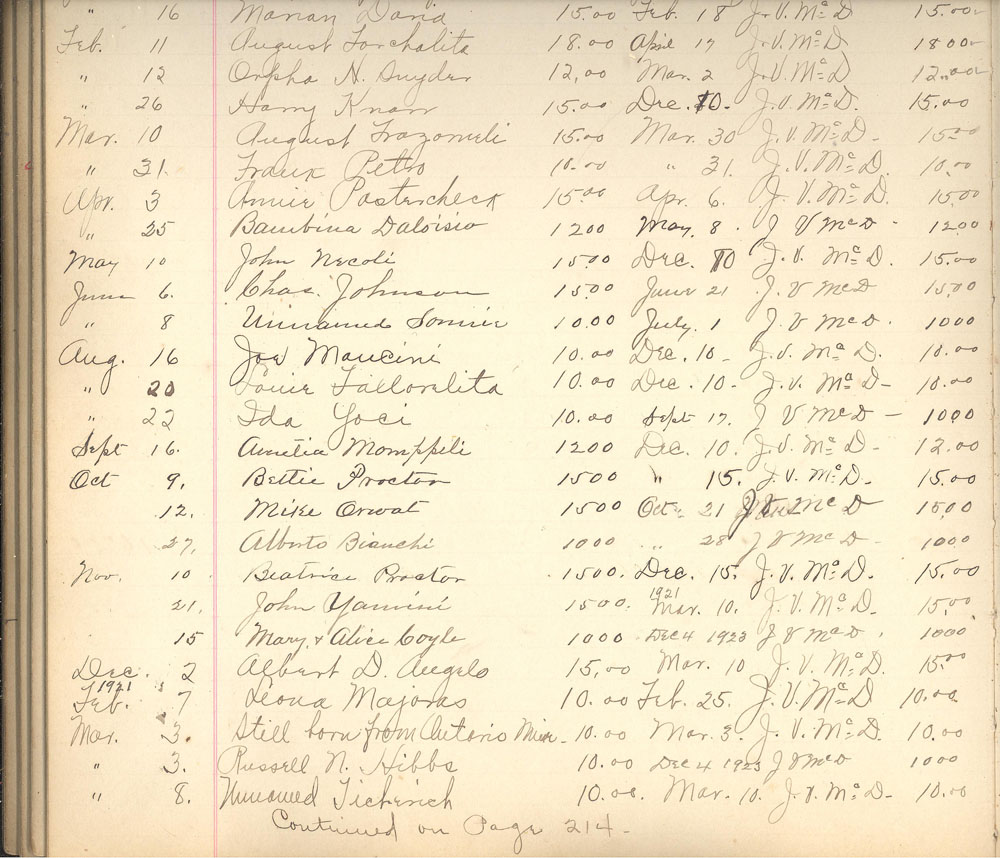 " 16 Marian David 15.00 Feb. 18 J.V. McD 15.00
Feb. 11 August 18.00 April 17 J.V. McD 18.00
" 12 Orpha N. Snyder 12.00 Mar. 2 J.V. McD 12.00
" 26 Harry Knarr 15.00 Dec. 10. J.V. McD. 15.00
Mar. 10 August 15.00 Mar. 30 J.V. McD - 15.00
" 31. Frank Petro 10.00 " 31. J.V. McD. 10.00
Apr. 3 Annie Postercheck 15.00 Apr. 6. J.V. McD. 15.00
" 25 Bambina Daloisio 1200 May. 8. J V McD - 12.00
May 10 John Necoli 15.00 Dec. 10 J.V. McD. 15.00
June 6. Chas. Johnson 15.00 June 21 J V McD 15.00
" 8 Unnamed 10.00 July. 1 J V McD. 1000
Aug. 16 Joe Mancini 10.00 Dec. 10 - J.V. McD. 10.00
" 20 Louie 10.00 Dec. 10 - J.V. McD - 10.00
" 22 Ida Yoci 10.00 Sept 17. J V McD - 1000
Sept 16. Aurelia Momppili 1200 Dec. 10. J.V. McD - 12.00
Oct 9. Bettie Proctor 1500 " 15. J.V. McD. 15.00
12. Mike Orwat 1500 Oct - 21 McD 15.00
27. Alberto Bianchi 1000 " 28 J V McD - 1000
Nov. 10 Beatrice Proctor 1500. Dec. 15. J.V. McD. 15.00
21. John Yannini 1500. 1921 Mar. 10. J.V. McD. 15.00
15 Mary & Alice Coyle 1000 Dec 4 1923 J V McD. 1000
Dec. 2 Albert D. Angelo 15.00 Mar. 10 J.V. McD. 15.00
1921 Feb. 7 Leona Majoras 10.00 Feb. 25. J.V. McD 10.00
Mar. 3. Still born from 10.00 Mar. 3. J.V. McD. 10.00
" 3. Russell N. Hibbs 10.00 Dec 4 1923 J V McD 1000
" 8. Unnamed 10.00. Mar. 10. J.V. McD - 10.00
Continued on Page 214 -